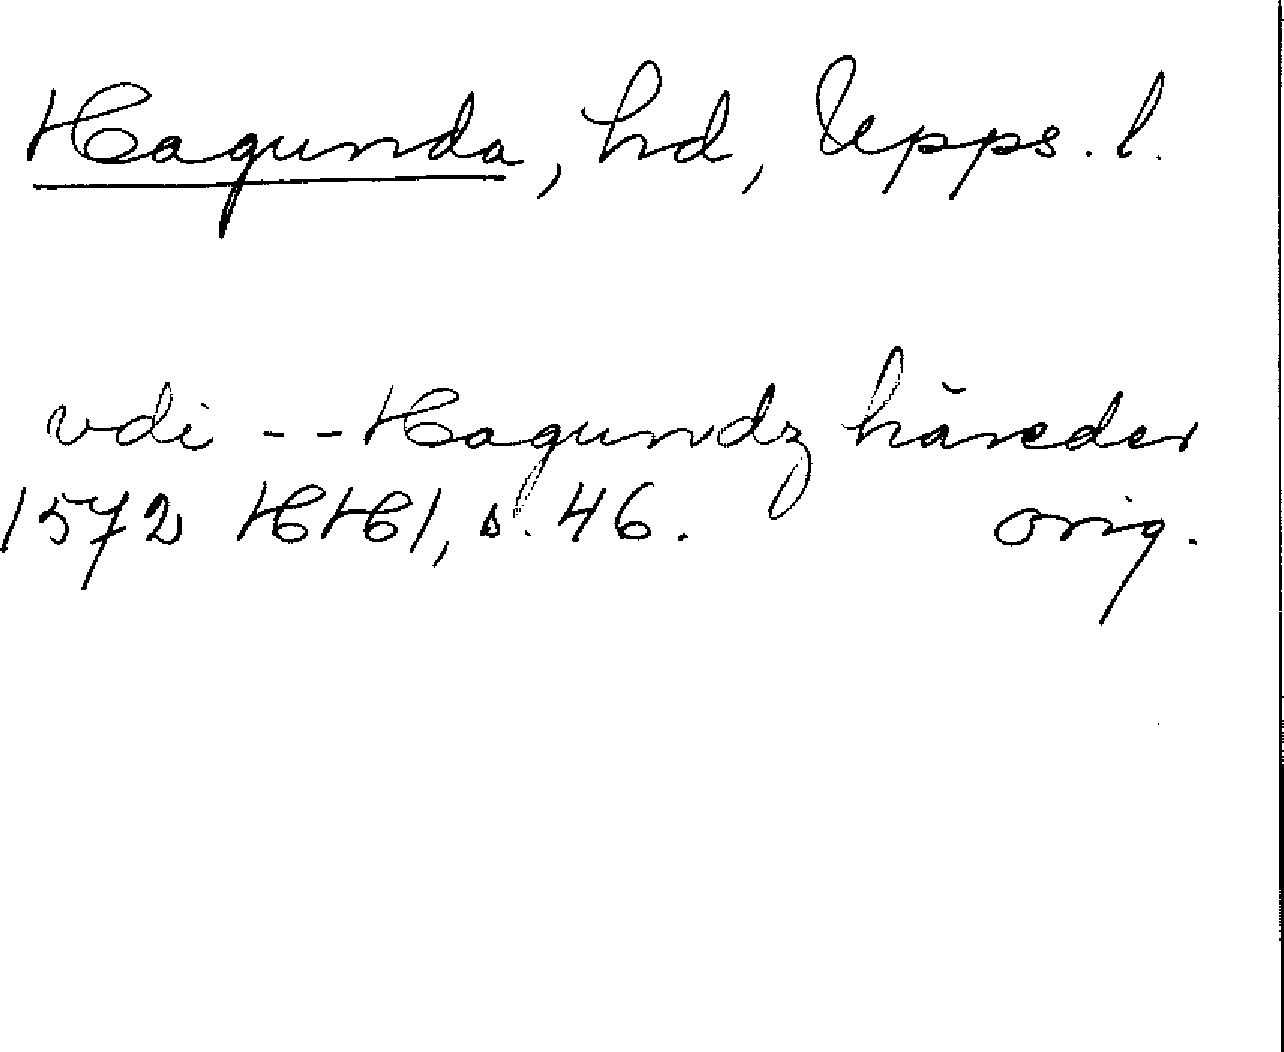 Hagunda, hd, Upps. l.
vdi -- Hagundz häreder
1572 HH 1, s. 46. orig.